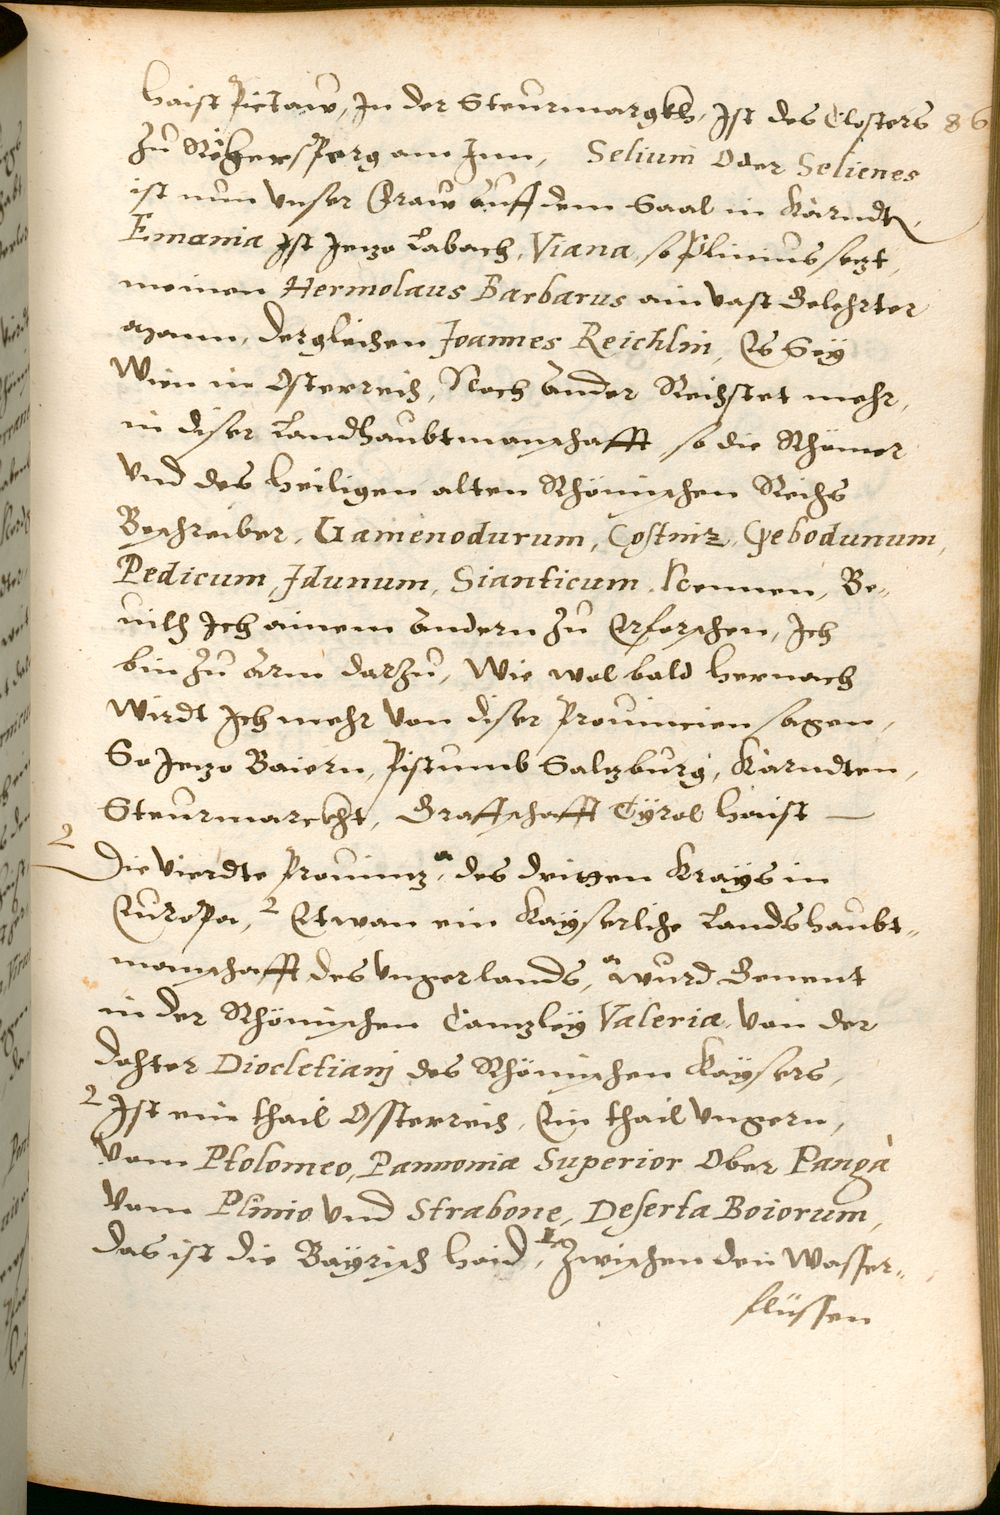 haist Pietaw, In der Steurmargkh, Ist des Closters 86
zu Rögersperg am Inn, Selium Oder Selienes
ist nun unser Fraw auff dem Saal in Kärndt,
Emania Ist Jezo Labach, Viana, so Plinius sezt,
meinen Hermolaus Barbarus ain vast Gelehrter
Mann, dergleichen Joannes Reichlin, Es Sey
Wien in Osterreich, Noch ander Reichstet mehr,
in diser Landhaubtmanschafft so die Rhömer
Und des heiligen alten Rhömischen Reichs
Beschreiber, Gamenodurum, Costniz, Gebodunum,
Pedicum, Idunum, Sianticum, Nennen, Be-
vilh Ich ainem andern zu Erforschen, Ich
bin zu arm darzu, Wie wol bald hernach
Wirdt Ich mehr von diser Provincien sagen,
So Jezo Baiern, Pistumb Salzburg, Kärndten,
Steurmarckht, Graffschafft Tÿrol haist —
2
Die Vierdte Provinz, a des dritten Krayß in
Europa, 2 Etwan ein Kayserliche Landshaubt-
manschafft des Ungerlands, a wurd Genent
in der Rhömischen Canzleÿ Valeria, von der
dohter Diocletianj des Rhömischen Kaÿsers,
2 Ist ein thail Ossterreich, Ein thail Ungern,
Vom Ptolomeo, Pannoniæ Superior Ober Pangà
Vom Plinio Und Strabone, Deserta Boiorum,
das ist die Baÿrisch haid, Zwischen den Wasser-
flüssen